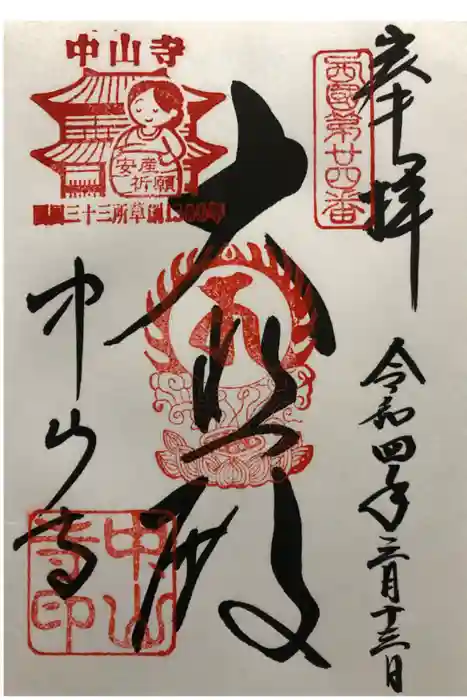 奉拝
西国第廿四番
令和四年三月十三日
大悲殿
中山寺
中山寺
安産
祈願
西国三十三所草創1300年
中山寺印